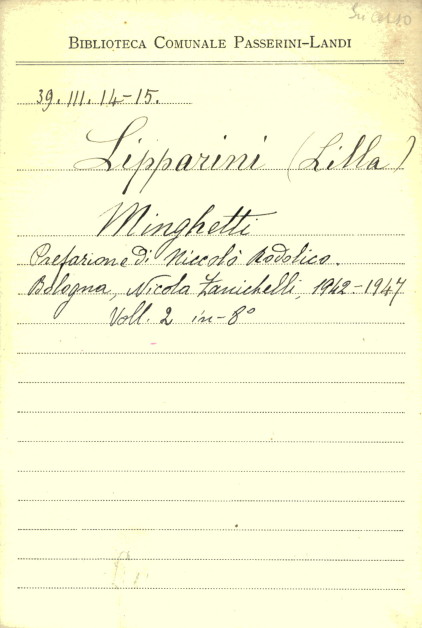 BIBLIOTECA COMUNALE PASSERINI-LANDI
39. III. 14-15.
Lipparini (Lilla)
Minghetti
Prefazione di Niccolò Rodolico.
Bologna, Nicola Zanichelli, 1942-1947
Voll. 2 in-8°